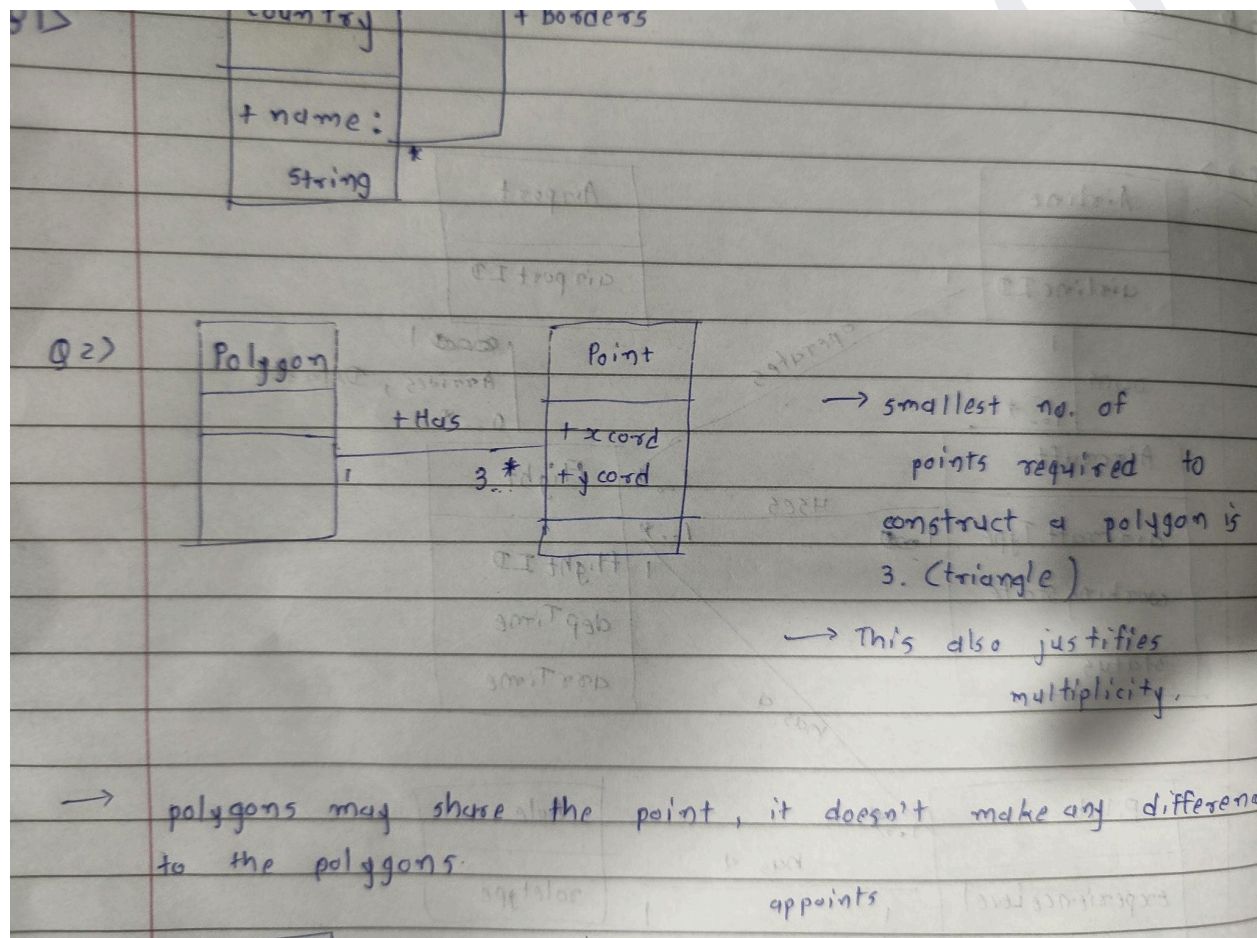 Country
+ borders
+ name :
string
*
Q 2)
Polygon
+ Has
1
3..*
Point
+ x cord
+ y cord
→ smallest no. of
points required to
construct a polygon is
3. (triangle)
→ This also justifies
multiplicity.
→ polygons may share the point, it doesn't make any differenc
to the polygons.
appoints